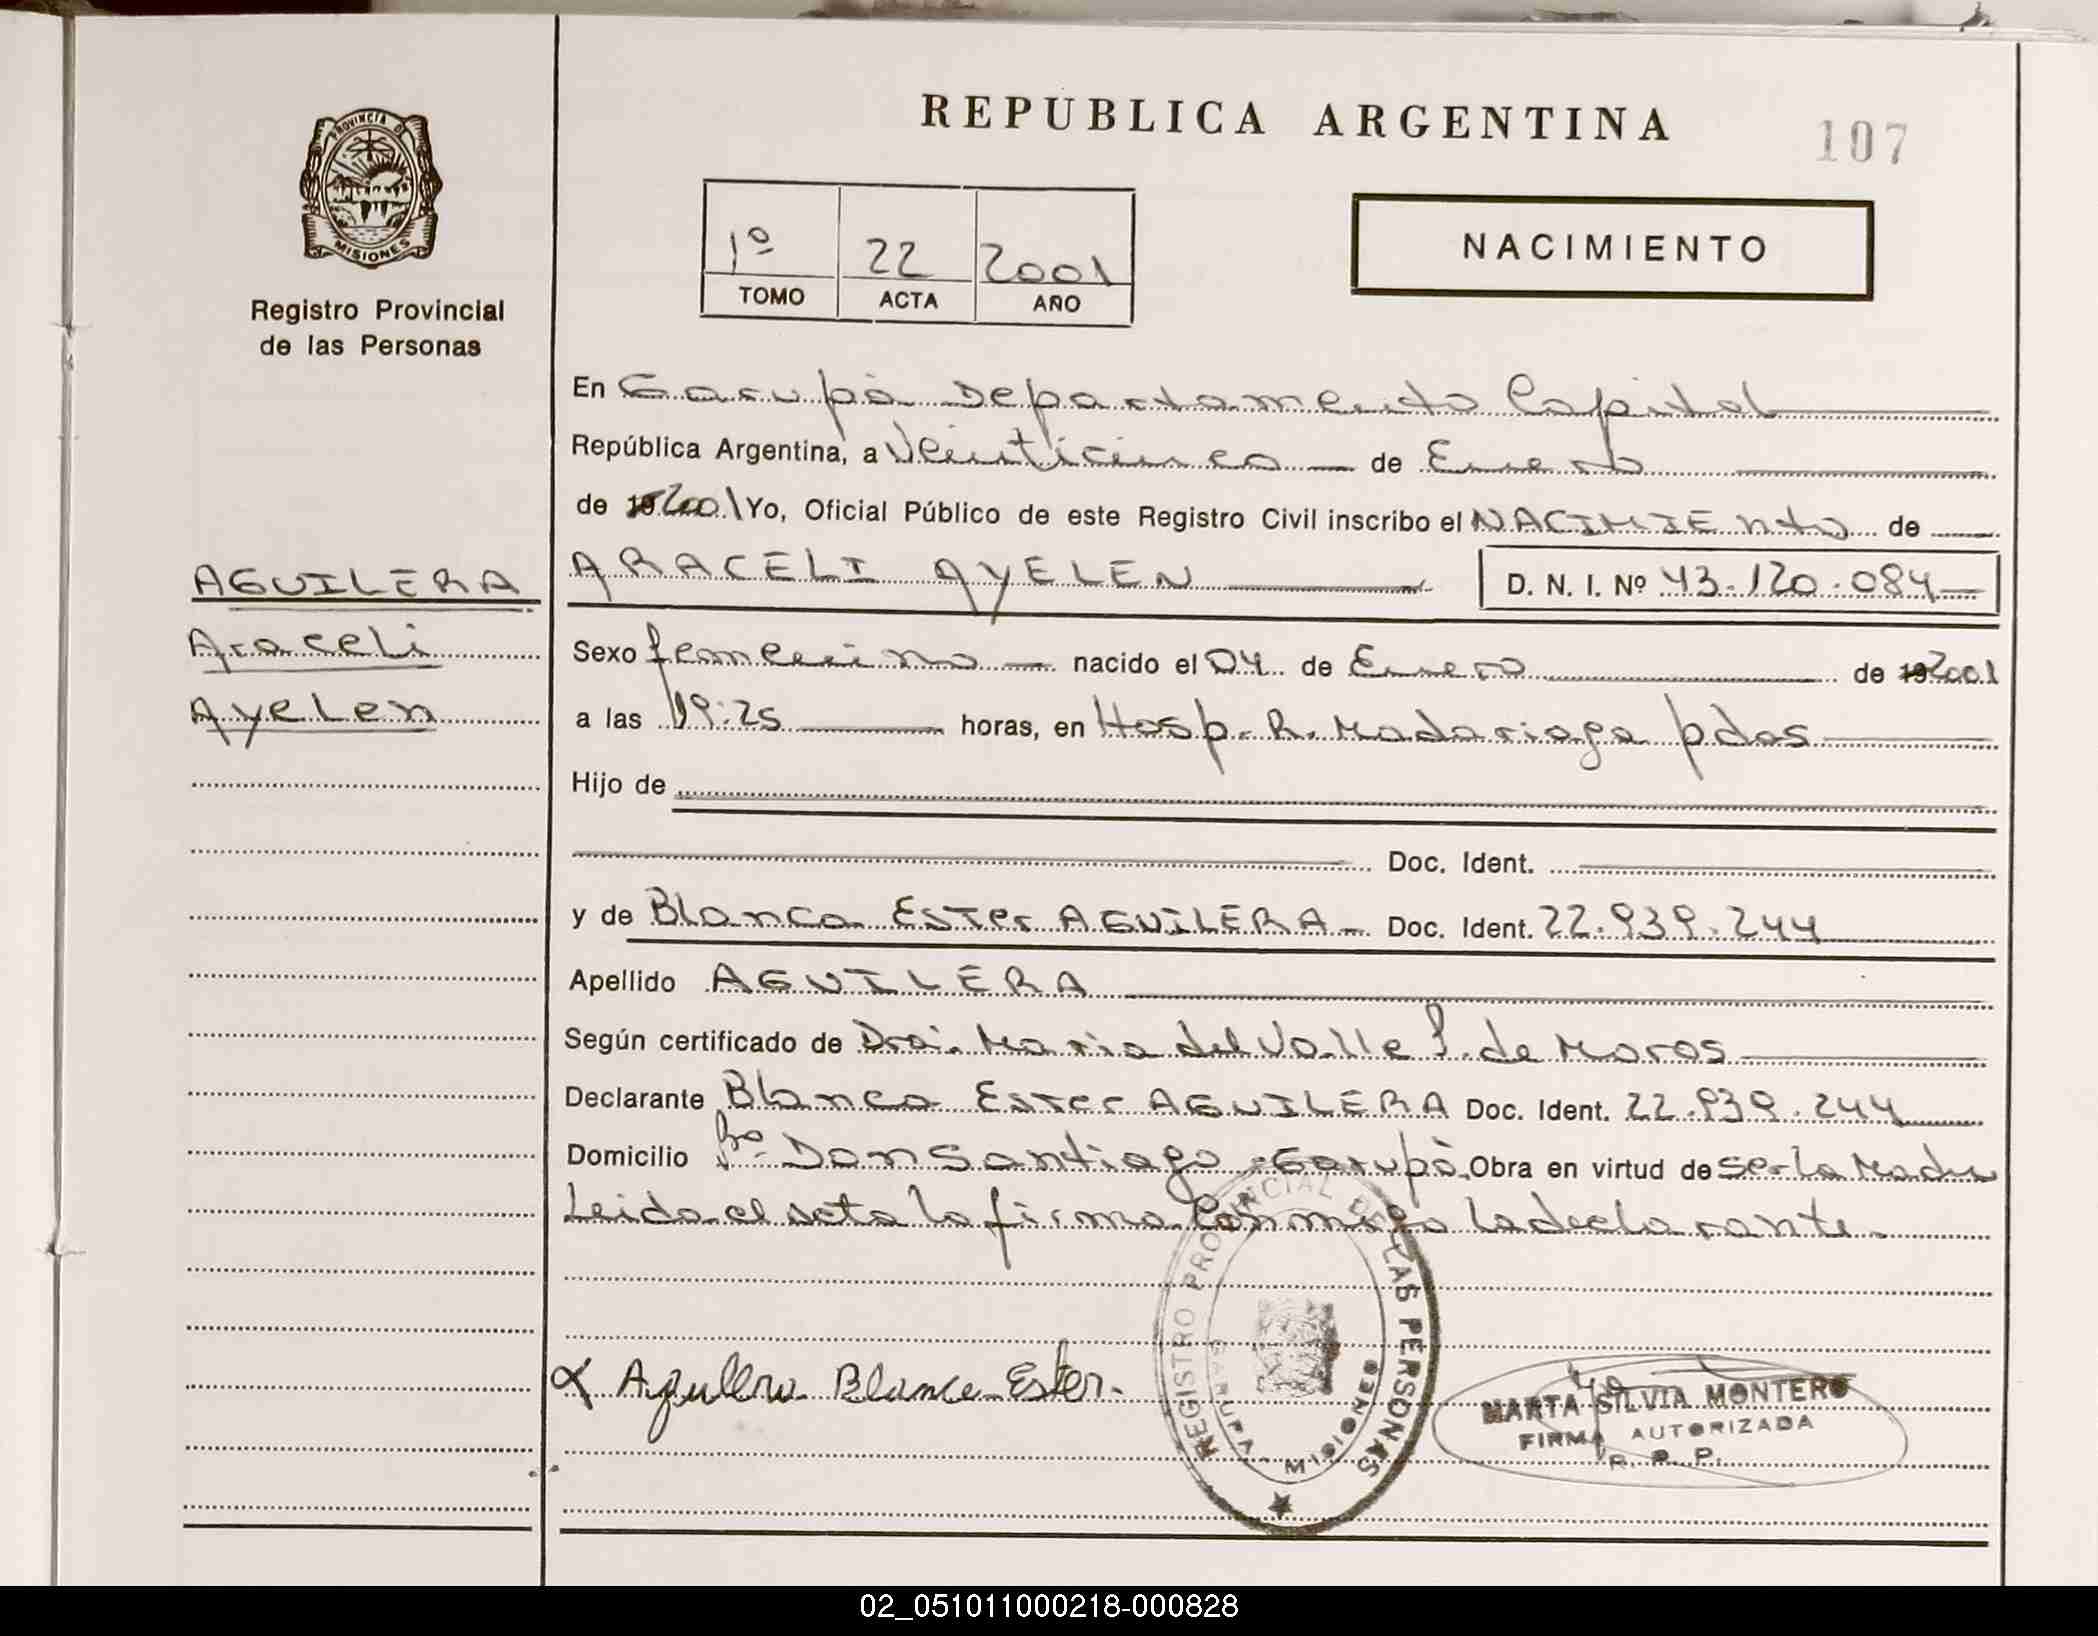 REPUBLICA ARGENTINA
107
PROVINCIA DE
MISIONES
Registro Provincial
de las Personas
1º 22 2001
TOMO ACTA AÑO
NACIMIENTO
En Garupá Departamento Capital
República Argentina, a Veinticinco de Enero
de 19 2001 Yo, Oficial Público de este Registro Civil inscribo el NACIMIENTO de
AGUILERA
Araceli
Ayelen
ARACELI AYELEN D. N. I. Nº 43.120.084
Sexo femenino nacido el 04 de Enero de 19 2001
a las 19:25 horas, en Hosp. R. Madariaga pdas
Hijo de
Doc. Ident.
y de Blanca Ester AGUILERA Doc. Ident. 22.939.244
Apellido AGUILERA
Según certificado de Dra. Maria del Valle F. de Moros
Declarante Blanca Ester AGUILERA Doc. Ident. 22.939.244
Domicilio Bº Don Santiago - Garupá Obra en virtud de ser la Madre
Leida el acta la firma conmigo la declarante.
Aguilera Blanca Ester.
REGISTRO PROVINCIAL DE LAS PERSONAS
GARUPA MISIONES
MARTA SILVIA MONTERO
FIRMA AUTORIZADA
R. P. P.
02_051011000218-000828